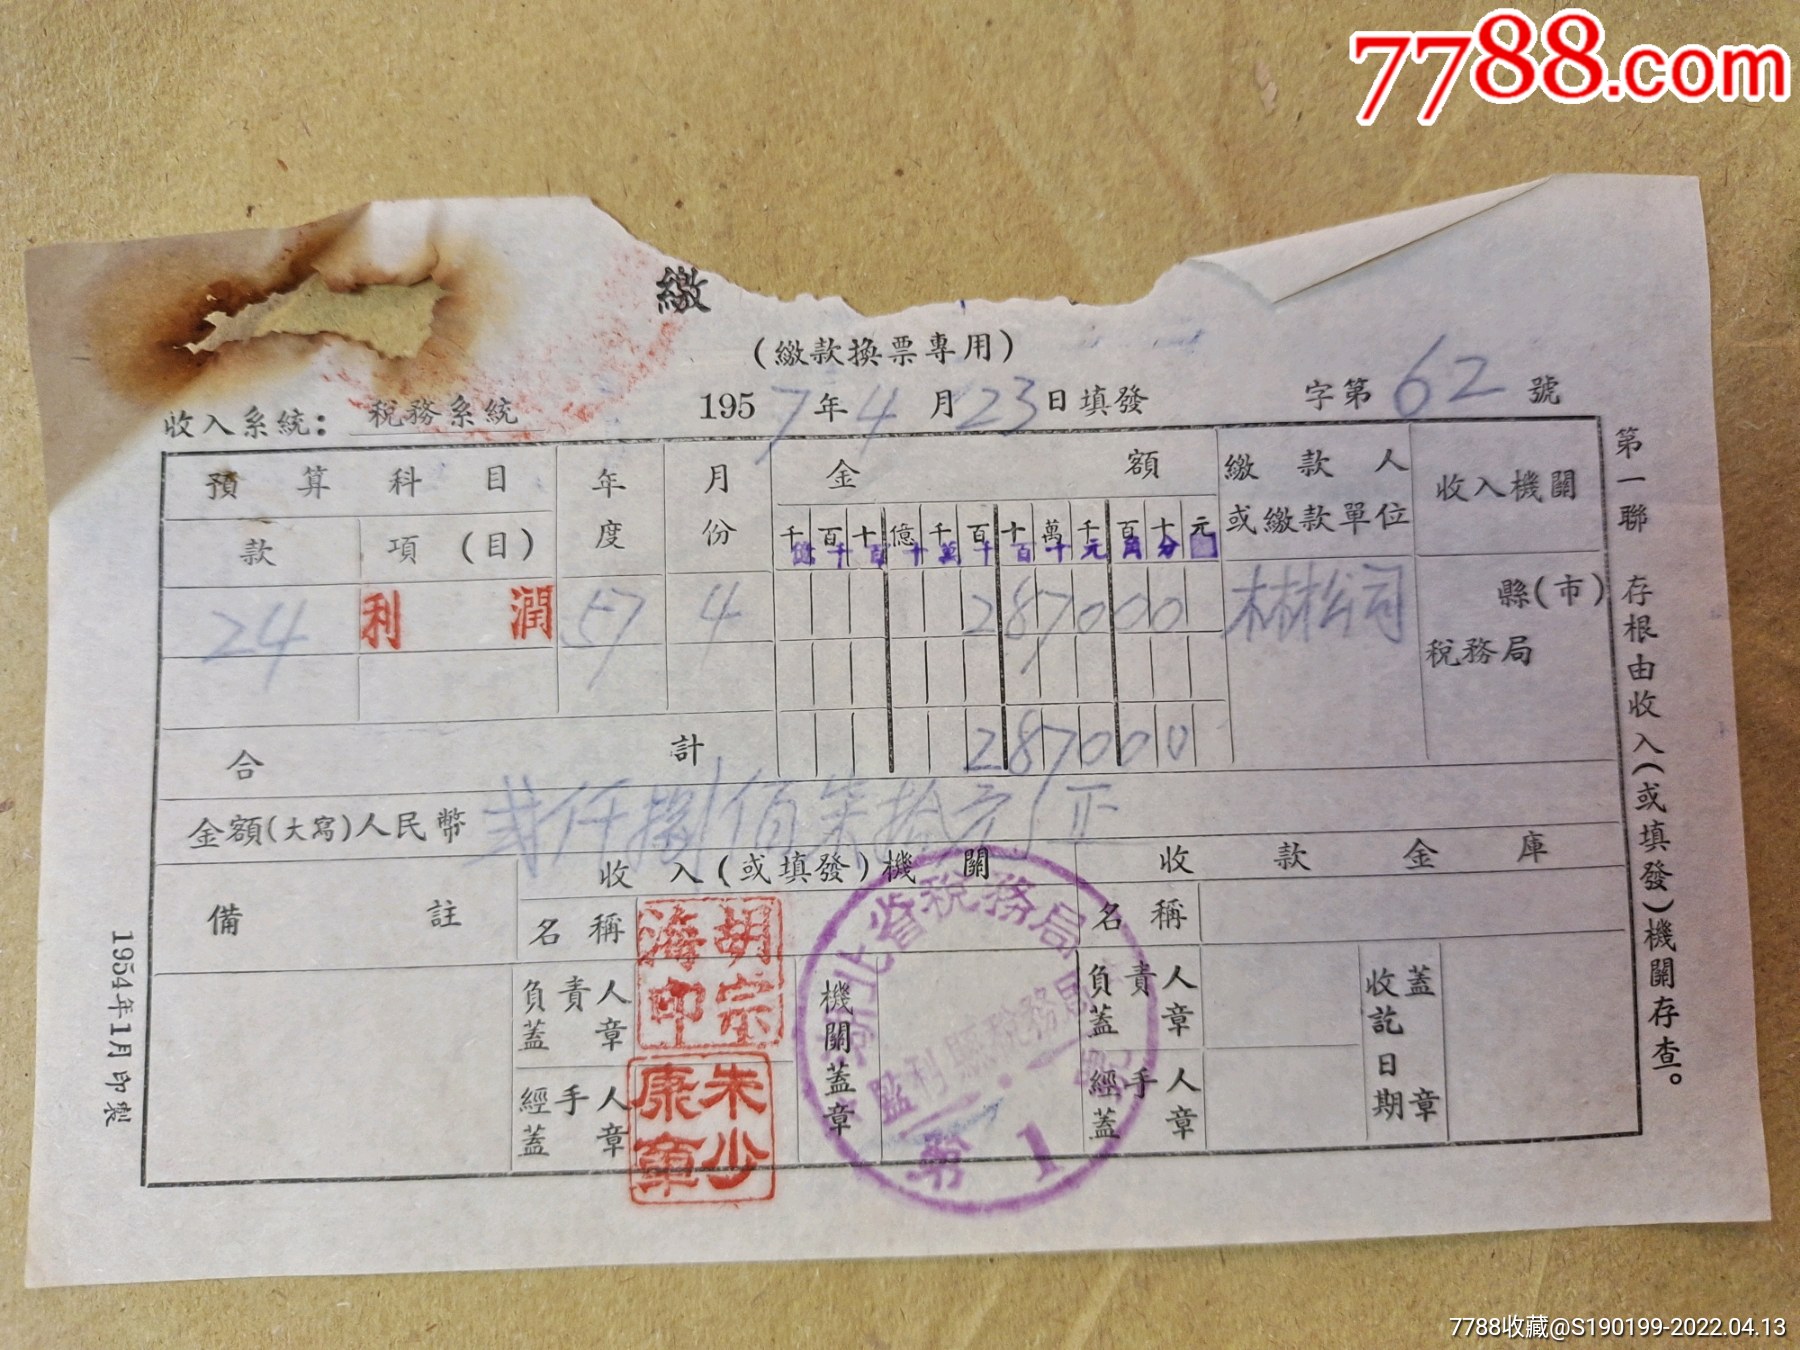 7788.com
繳
(繳款換票專用)
收入系統: 稅務系統
1957年4月23日填發
字第62號
預算科目 年度 月份 金額 繳款人或繳款單位 收入機關
款 項(目)
千百十億千百十萬千百十元
億千百十萬千百十元角分
24 利潤 57 4 287000 林松公司 縣(市)稅務局
合計 287000
金額(大寫)人民幣 貳仟捌佰柒拾元正
備註 收入(或填發)機關 收款金庫
名稱 名稱
負責人蓋章 機關蓋章 負責人蓋章 收訖日期 蓋章
經手人蓋章 經手人蓋章
胡宗海印
朱少康章
湖北省稅務局
監利縣稅務局
1
第一聯 存根由收入(或填發)機關存查。
1954年1月印製
7788收藏@S190199-2022.04.13